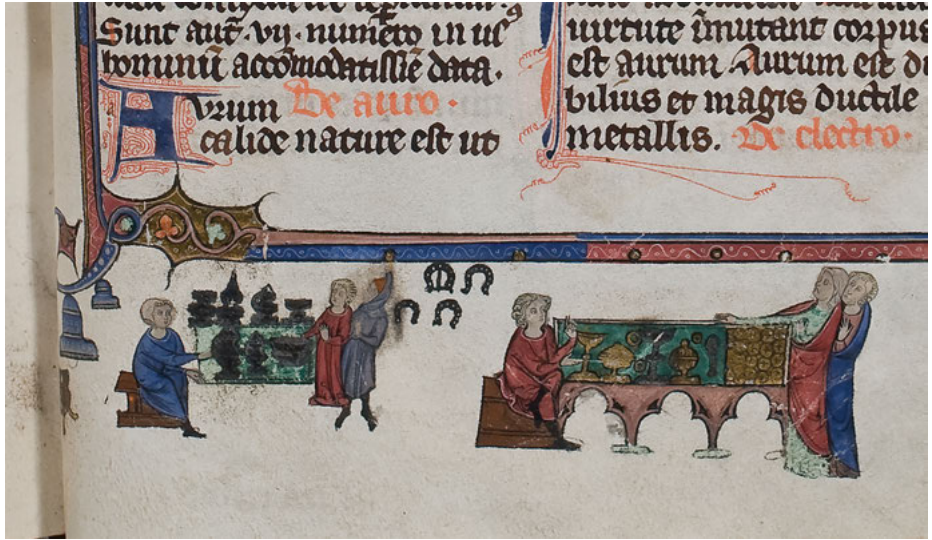 Sunt aut̄. vij. numero in us⁹
hominū accōmodatissīe data.
Avrum De auro ·
calide nature est ut
uirtute īmutant corpus
est aurum. Aurum est du
bilius et magis ductile
metallis. De electro ·